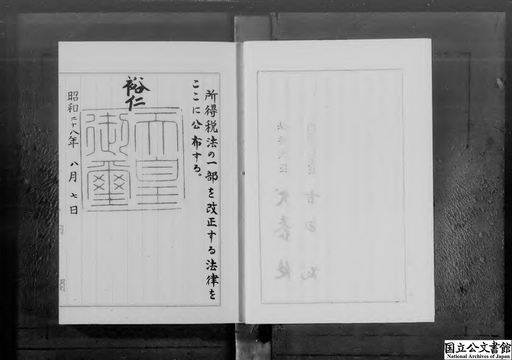 所得税法の一部を改正する法律を
ここに公布する。
裕仁
天皇
御璽
昭和二十八年 八月 七日
国立公文書館
National Archives of Japan